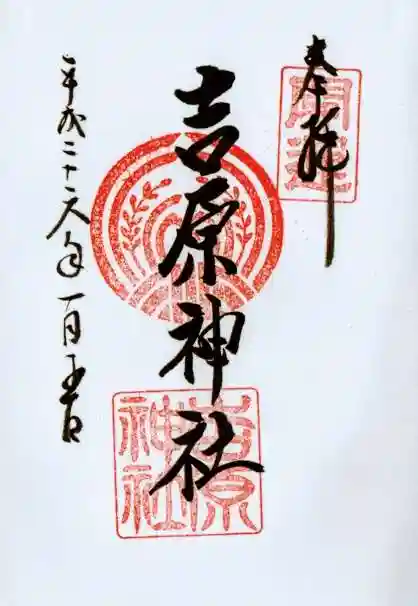 奉拝
開運
吉原神社
吉原
神社
平成二十六年一月五日